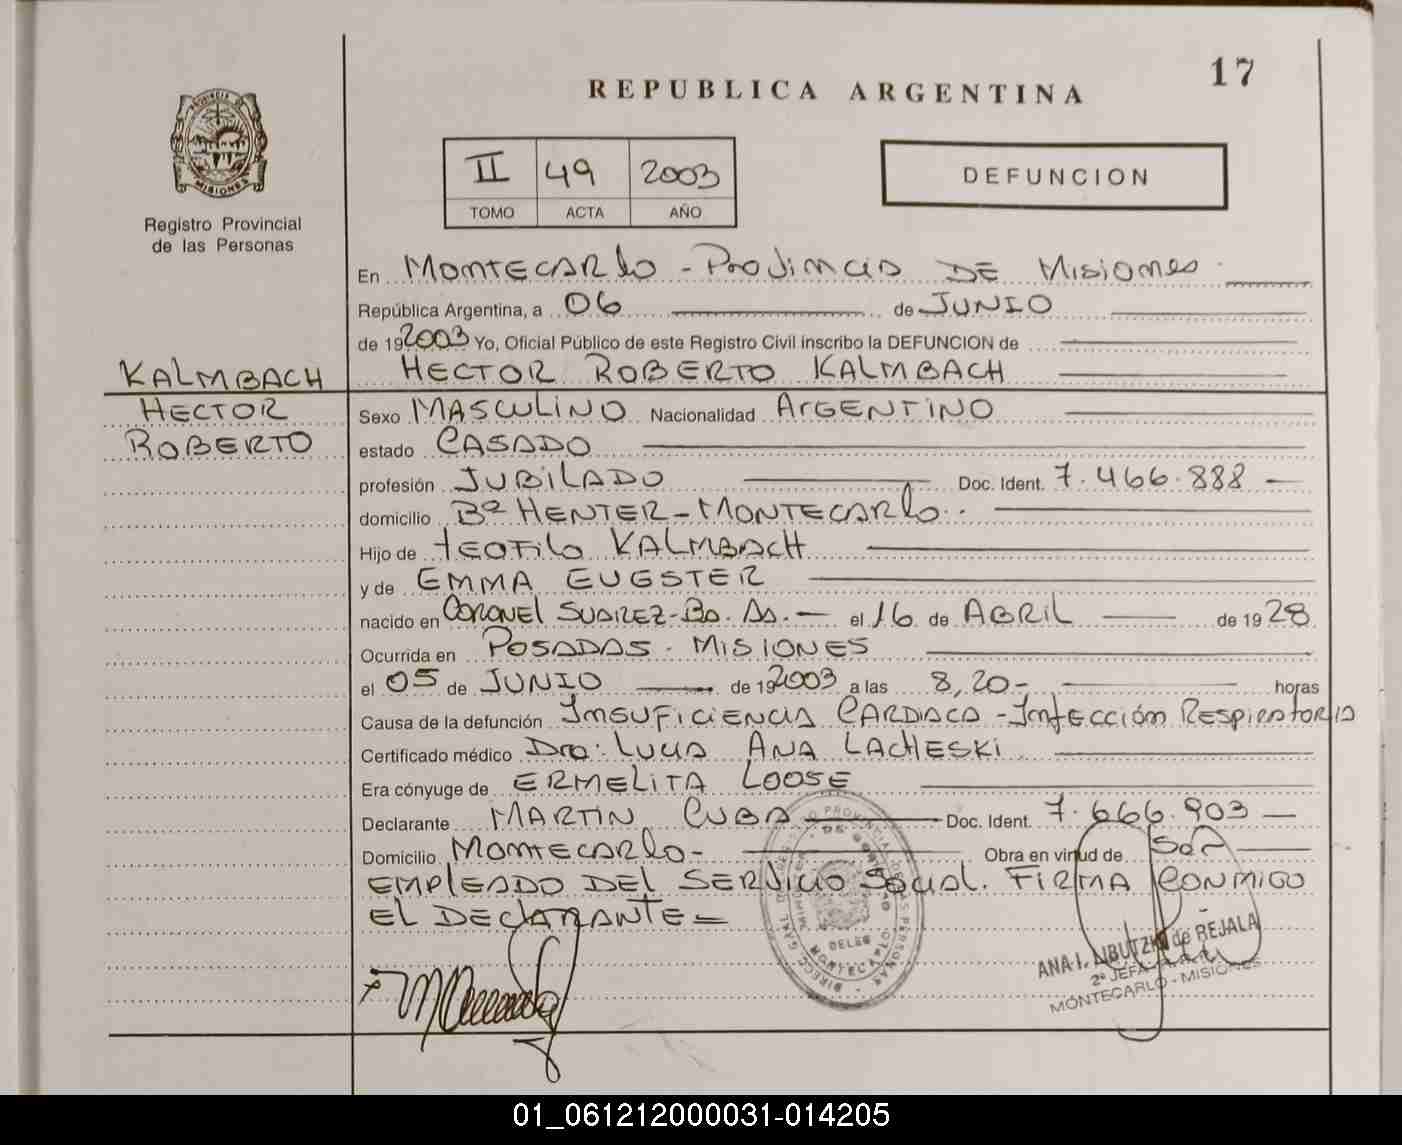 17
REPUBLICA ARGENTINA
PROVINCIA DE
MISIONES
Registro Provincial
de las Personas
II 49 2003
TOMO ACTA AÑO
DEFUNCION
En MONTECARLO - PROVINCIA DE MISIONES.
República Argentina, a 06 de JUNIO
de 192003 Yo, Oficial Público de este Registro Civil inscribo la DEFUNCION de
HECTOR ROBERTO KALMBACH
KALMBACH
HECTOR
ROBERTO
Sexo MASCULINO Nacionalidad ARGENTINO
estado CASADO
profesión JUBILADO Doc. Ident. 7.466.888 —
domicilio Bº HENTER - MONTECARLO.
Hijo de TEOFILO KALMBACH
y de EMMA EUGSTER
nacido en CORONEL SUAREZ - Bs. As. — el 16 de ABRIL de 1928
Ocurrida en POSADAS - MISIONES
el 05 de JUNIO de 192003 a las 8,20 - horas
Causa de la defunción INSUFICIENCIA CARDIACA - INFECCIÓN RESPIRATORIA
Certificado médico Dra: LUCIA ANA LACHESKI
Era cónyuge de ERMELITA LOOSE
Declarante MARTIN CUBA Doc. Ident. 7.666.903 —
Domicilio MONTECARLO - Obra en virtud de SER
EMPLEADO DEL SERVICIO SOCIAL. FIRMA CONMIGO
EL DECLARANTE —
MONTECARLO
ANA I. LIBUTZKI de REJALA
2º JEFA
MONTECARLO - MISIONES
01_061212000031-014205